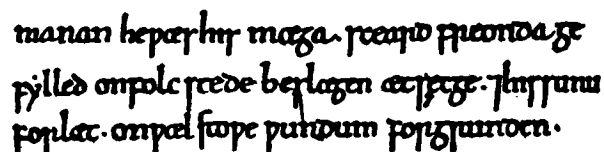 manan heƿæs his mæga. sceard freonda ge
fylled onfolc stede beslagen æt sęcge. ⁊his sunu
forlæt. onƿæl stoƿe ƿundum forgrunden.